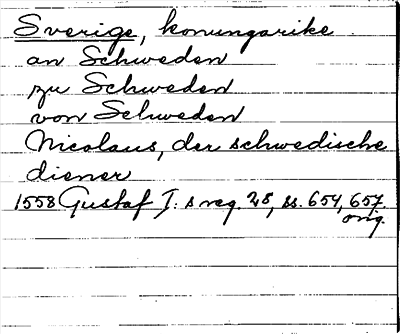 Sverige, konungarike
an Schweden
zu Schweden
von Schweden
Nicolaus, der schwedische
diener
1558 Gustaf I: s reg. 28, ss. 654, 657.
orig.